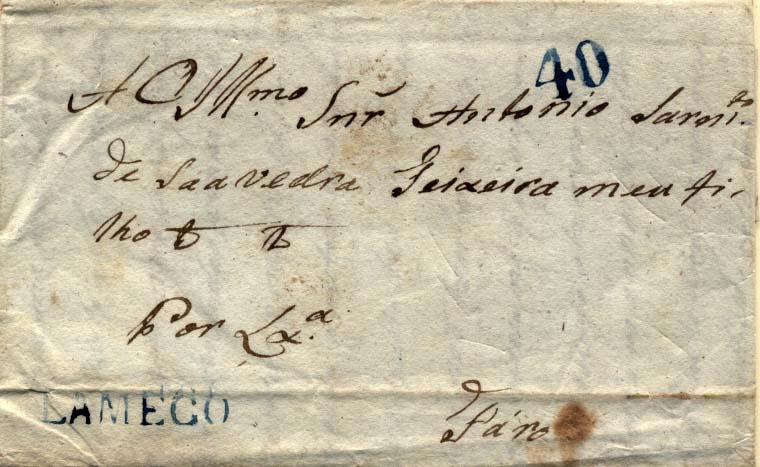 40
A O Illmo Snr Antonio Sarmto
de Saavedra Teixeira meu fi-
lho
Por Lxa
Fáro
LAMEGO